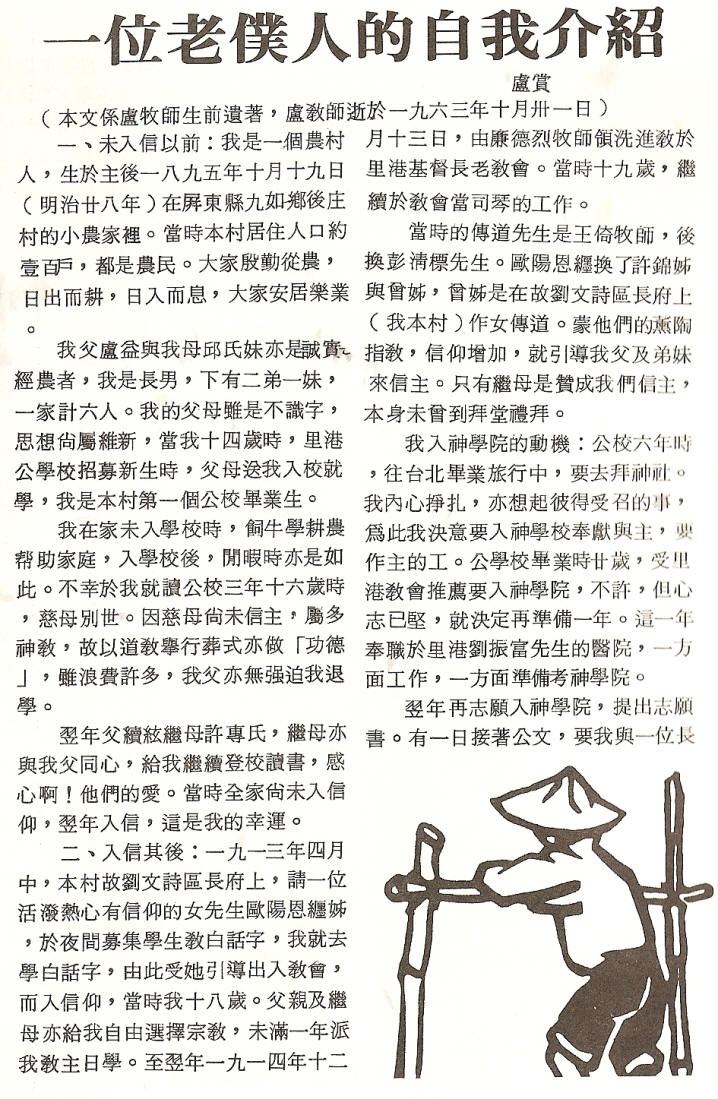 一位老僕人的自我介紹
盧賞
（本文係盧牧師生前遺著，盧教師逝於一九六三年十月卅一日）
一、未入信以前：我是一個農村
人，生於主後一八九五年十月十九日
（明治廿八年）在屏東縣九如鄉後庄
村的小農家裡。當時本村居住人口約
壹百戶，都是農民。大家殷勤從農，
日出而耕，日入而息，大家安居樂業
。
我父盧益與我母邱氏妹亦是誠實
經農者，我是長男，下有二弟一妹，
一家計六人。我的父母雖是不識字，
思想尚屬維新，當我十四歲時，里港
公學校招募新生時，父母送我入校就
學，我是本村第一個公校畢業生。
我在家未入學校時，飼牛學耕農
幫助家庭，入學校後，閒暇時亦是如
此。不幸於我就讀公校三年十六歲時
，慈母別世。因慈母尚未信主，屬多
神教，故以道教舉行葬式亦做「功德
」，雖浪費許多，我父亦無强迫我退
學。
翌年父續絃繼母許專氏，繼母亦
與我父同心，給我繼續登校讀書，感
心啊！他們的愛。當時全家尚未入信
仰，翌年入信，這是我的幸運。
二、入信其後：一九一三年四月
中，本村故劉文詩區長府上，請一位
活潑熱心有信仰的女先生歐陽恩纒姊
，於夜間募集學生教白話字，我就去
學白話字，由此受她引導出入教會，
而入信仰，當時我十八歲。父親及繼
母亦給我自由選擇宗教，未滿一年派
我教主日學。至翌年一九一四年十二
月十三日，由廉德烈牧師領洗進教於
里港基督長老教會。當時十九歲，繼
續於教會當司琴的工作。
當時的傳道先生是王倚牧師，後
換彭清標先生。歐陽恩纒換了許錦姊
與曾姊，曾姊是在故劉文詩區長府上
（我本村）作女傳道。蒙他們的薰陶
指教，信仰增加，就引導我父及弟妹
來信主。只有繼母是贊成我們信主，
本身未曾到拜堂禮拜。
我入神學院的動機：公校六年時
，往台北畢業旅行中，要去拜神社。
我內心掙扎，亦想起彼得受召的事，
爲此我決意要入神學校奉獻與主，要
作主的工。公學校畢業時廿歲，受里
港教會推薦要入神學院，不許，但心
志已堅，就決定再準備一年。這一年
奉職於里港劉振富先生的醫院，一方
面工作，一方面準備考神學院。
翌年再志願入神學院，提出志願
書。有一日接著公文，要我與一位長